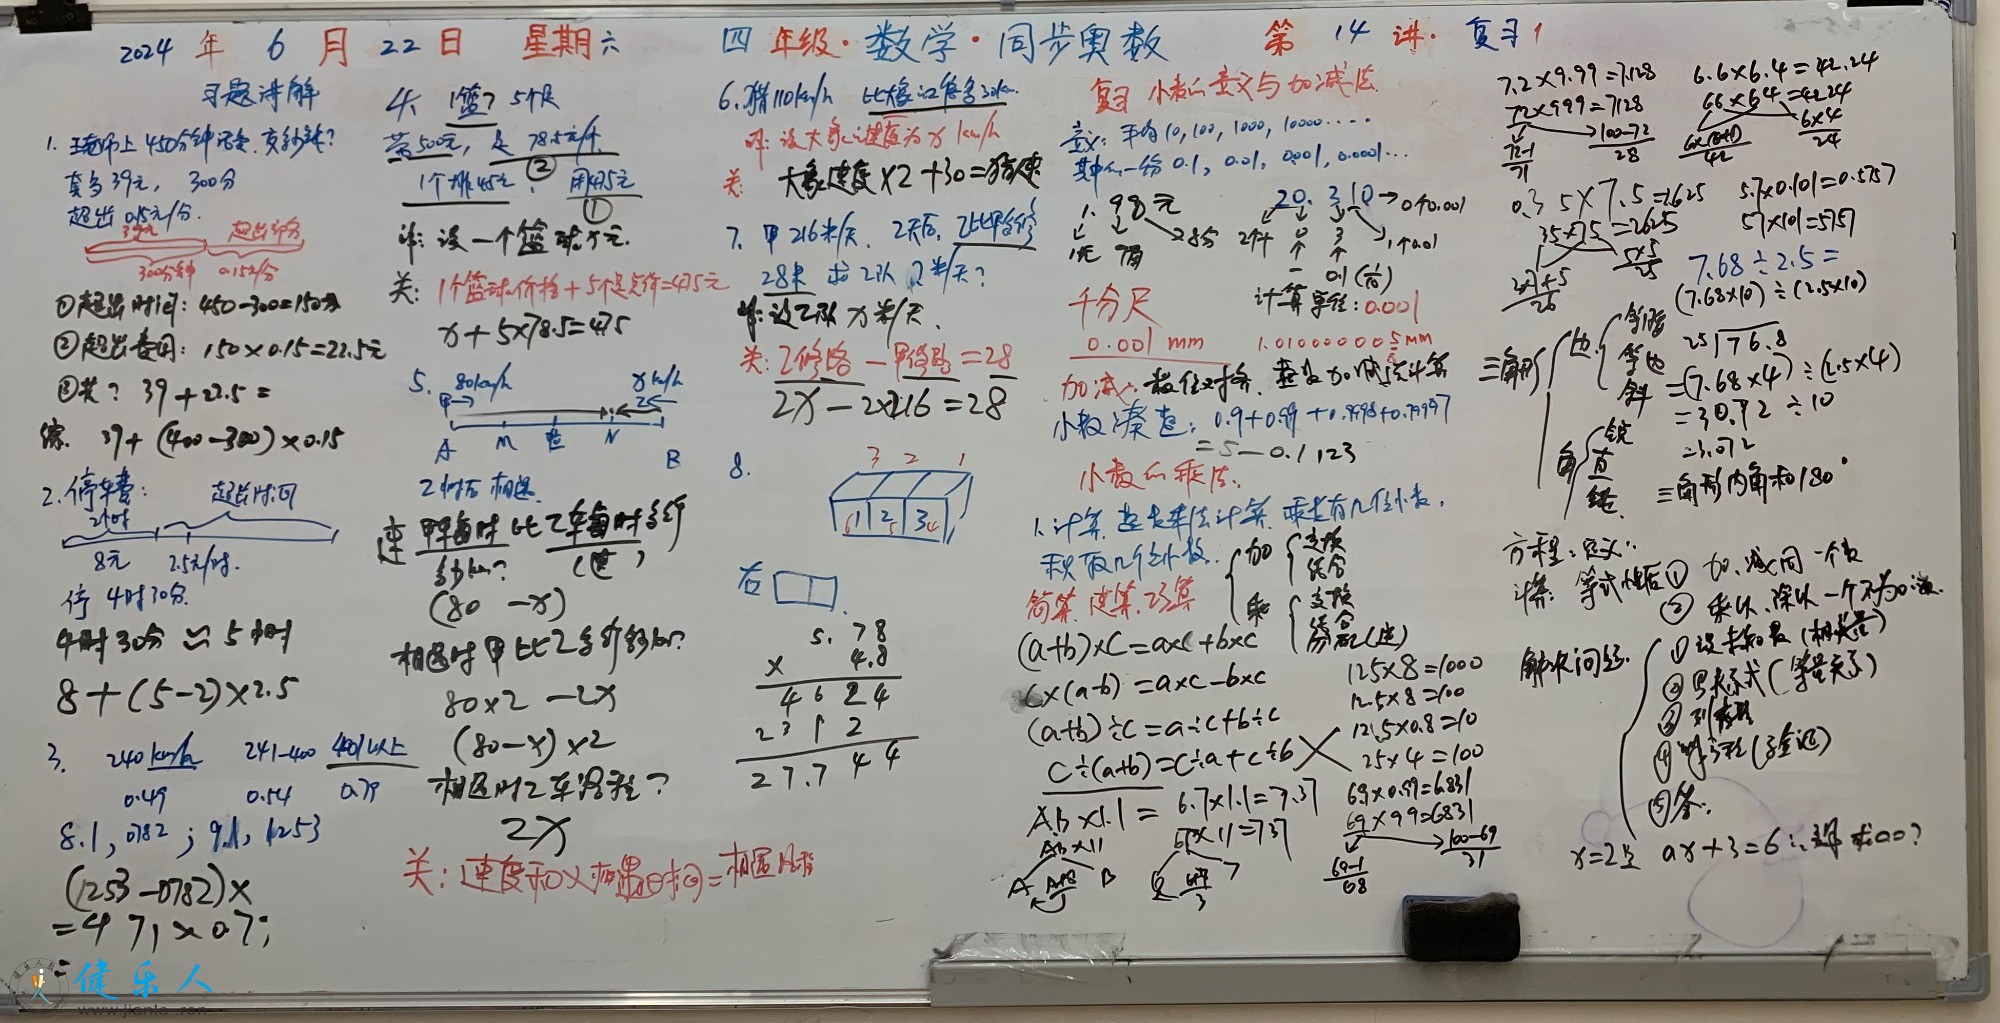 2024 年 6 月 22 日 星期六 四年级·数学·同步奥数 第 14 讲·复习1
习题讲解
1. 王老师上450分钟话费.交多少钱?
套多39元, 300分
超出 0.15元/分.
39元 超出部分
300分钟 0.15元/分
①超出时间: 450-300=150分
②超出费用: 150×0.15=22.5元
③共? 39+22.5=
综. 39+(400-300)×0.15
2. 停车费: 超出时间
2小时
8元 2.5元/时.
停 4时30分.
4时30分 ≈ 5小时
8+(5-2)×2.5
3. 240km/h 241-400 401以上
0.49 0.54 0.79
8.1, 0782 ; 9.1, 1253
(1253-0782)×
=471×0.7;
=
4. 1篮? 5个足
带500元, 足 78.5元/个.
②
1个排45元, 用475元
①
解: 设一个篮球x元.
关: 1个篮球价格+5个足总价=475元
x+5×78.5=475
5. 80km/h x km/h
甲→ 乙←
A M N B
2小时后相遇.
速 甲车每时比乙车每时多行
多少km? (速)
(80-x)
相遇时甲比乙多行多少km?
80×2-2x
(80-x)×2
相遇时乙车路程?
2x
关: 速度和×相遇时间=相遇路程
6. 猎110km/h 比大象2倍多30km.
解: 设大象速度为x km/h
关: 大象速度×2+30=猎速
7. 甲216米/天. 2天后, 乙比甲多修
28米 求乙队?米/天?
解: 设乙队x米/天.
关: 乙修路-甲修路=28
2x-2×216=28
8. 3 2 1
6 1 2 5 3 4
右
5.78
× 4.8
4624
2312
27.744
复习 小数的意义与加减法.
意义: 平均10, 100, 1000, 10000·····
其中的一份 0.1, 0.01, 0.001, 0.0001···
1.98元 20.310→0个0.001
1元 9角 8分 2个十 0 3 1个0.01
一 0.1
千分尺 计算单位: 0.001
0.001 mm 1.010000005mm
加减. 数位对齐. 按整数加减法计算
小数凑整: 0.9+0.99+0.9998+0.99997
=5-0.1123
小数的乘法.
1.计算 按整数乘法计算. 乘数有几位小数,
积取几位小数.
简算 速算.巧算
加 交换 结合
乘 交换 结合 分配(逆)
(a+b)×c=a×c+b×c
c×(a-b)=a×c-b×c
(a+b)÷c=a÷c+b÷c
c÷(a+b)=c÷a+c÷b ×
125×8=1000
12.5×8=100
12.5×0.8=10
25×4=100
A.B×1.1= 6.7×1.1=7.37
AB×11 67×11=737
A A+B B 6 6+7 7
3
69×0.99=6.831
69×99=6831
69-1 100-69
68 31
7.2×9.99=7.128
72×999=7128
72-1 100-72
71 28
6.6×6.4=42.24
66×64=4224
6×(6+1) 6×4
42 24
0.35×7.5=2.625
35×75=2625
3×7+5 5×5
26 25
5.7×0.101=0.5757
57×101=5757
7.68÷2.5=
(7.68×10)÷(2.5×10)
25 76.8
=(7.68×4)÷(2.5×4)
=30.72÷10
=3.072
三角形 边 等腰 等边 斜
角 锐 直 钝
三角形内角和180°
方程: 定义:
计算: 等式性质 ① 加.减同一个数
② 乘以.除以一个不为0的数.
解决问题: ①设未知数(相关量)
②写关系式(等量关系)
③列方程
④解方程(检验)
⑤答.
x=2是 ax+3=6的解 求a=?
健乐人
www.jianle.ren